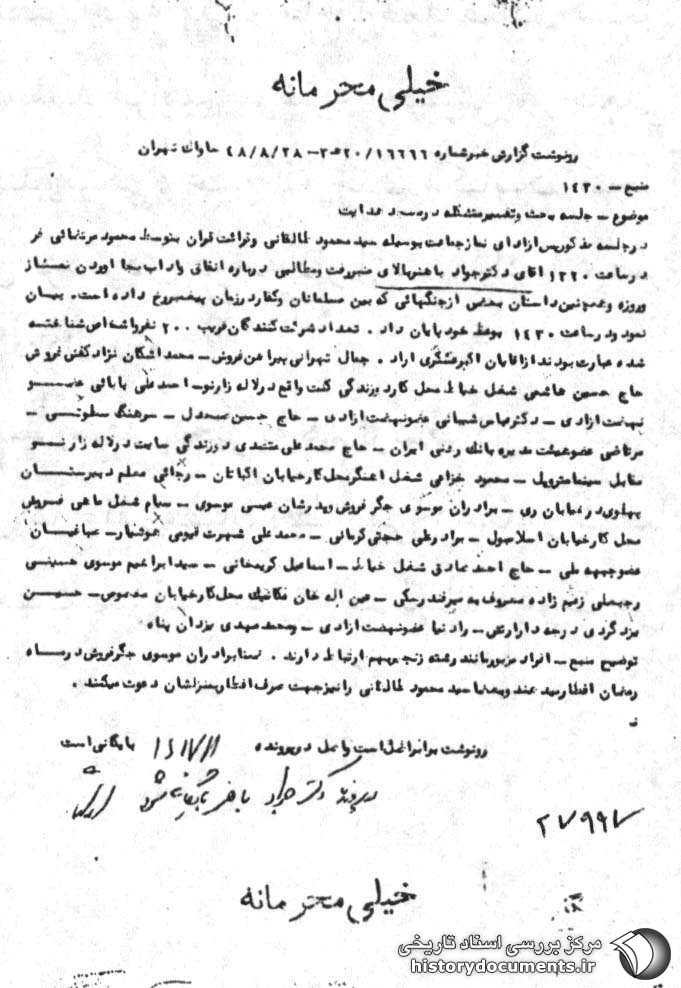 خیلی محرمانه
رونوشت گزارش خبر شماره ۱۶۶۶۶/۲۰ﻫ۳ – ۴۸/۸/۲۸ ساواک تهران
منبع – ۱۴۳۰
موضوع – جلسه بحث و تفسیر متشکله در مسجد هدایت
در جلسه مذکور پس از ادای نماز جماعت بوسیله سید محمود طالقانی و قرائت قران بتوسط محمود مرتضائی فر
در ساعت ۱۲۲۰ اقای دکتر جواد باهنر بالای منبر رفت و مطالبی درباره اتفاقی واداب بجا اوردن نماز
و روزه و همچنین داستان بعضی از جنگهائی که بین مسلمانان و کفار در زمان پیغمبر رخ داده است. بیان
نمود و در ساعت ۱۴۳۰ بوعظ خود پایان داد. تعداد شرکت کنندگان قریب ۲۰۰ نفر و اشخاص شناخته
شده عبارت بودند از اقایان اکبر عسگری اراد. جمال تهرانی پیراهن فروش – محمد اشکان نژاد کفش فروش
حاج حسین هاشمی شغل خیاط محل کار دوزندگی گلت واقع در لاله زارنو – احمد علی بابائی عضو
نهضت ازادی – دکتر عباس شیبانی عضو نهضت ازادی – حاج حسن سرهنگ سطوتی –
مرتاضی عضو هیئت مدیره بانک رهنی ایران – حاج محمد علی دوزندگی سایت در لاله زار نو
مقابل سینما متروپل – محمود خزاعی شغل اهنگر محل کار خیابان اکباتان – رجائی معلم دبیرستان
پهلوی در خیابان ری – برادران موسوی جگر فروش و پدرشان عیسی موسوی – شغل ماهی فروش
محل کار خیابان اسلامبول – برادر علی حجتی کرمانی – محمد علی شهرت قیومی هوشیار – صباغیان
عضو جبهه ملی – حاج احمد صادق شغل خیاط – اسماعیل کریمخانی – سید ابراهیم موسوی حسینی
رجبعلی زعیم زاده معروف به – عین اله خان مکانیک محل کار خیابان مخصوص – حسین
یزدگردی درجه دار ارتش – رادنیا عضو نهضت ازادی – و محمد مهدی یزدان پناه
توضیح منبع – افراد مزبور مانند رشته زنجیر بهم ارتباط دارند. ضمنا برادران موسوی جگر فروش در ماه
رمضان افطار میدهند و بعضا سید محمود طالقانی را نیز جهت صرف افطار بمنزلشان دعوت میکنند.
رونوشت برابر اصل است و اصل در پرونده بایگانی است
در پرونده دکتر جواد باهنر بایگانی شود
۲۷۹۹۷
خیلی محرمانه
مرکز بررسی اسناد تاریخی
historydocuments.ir